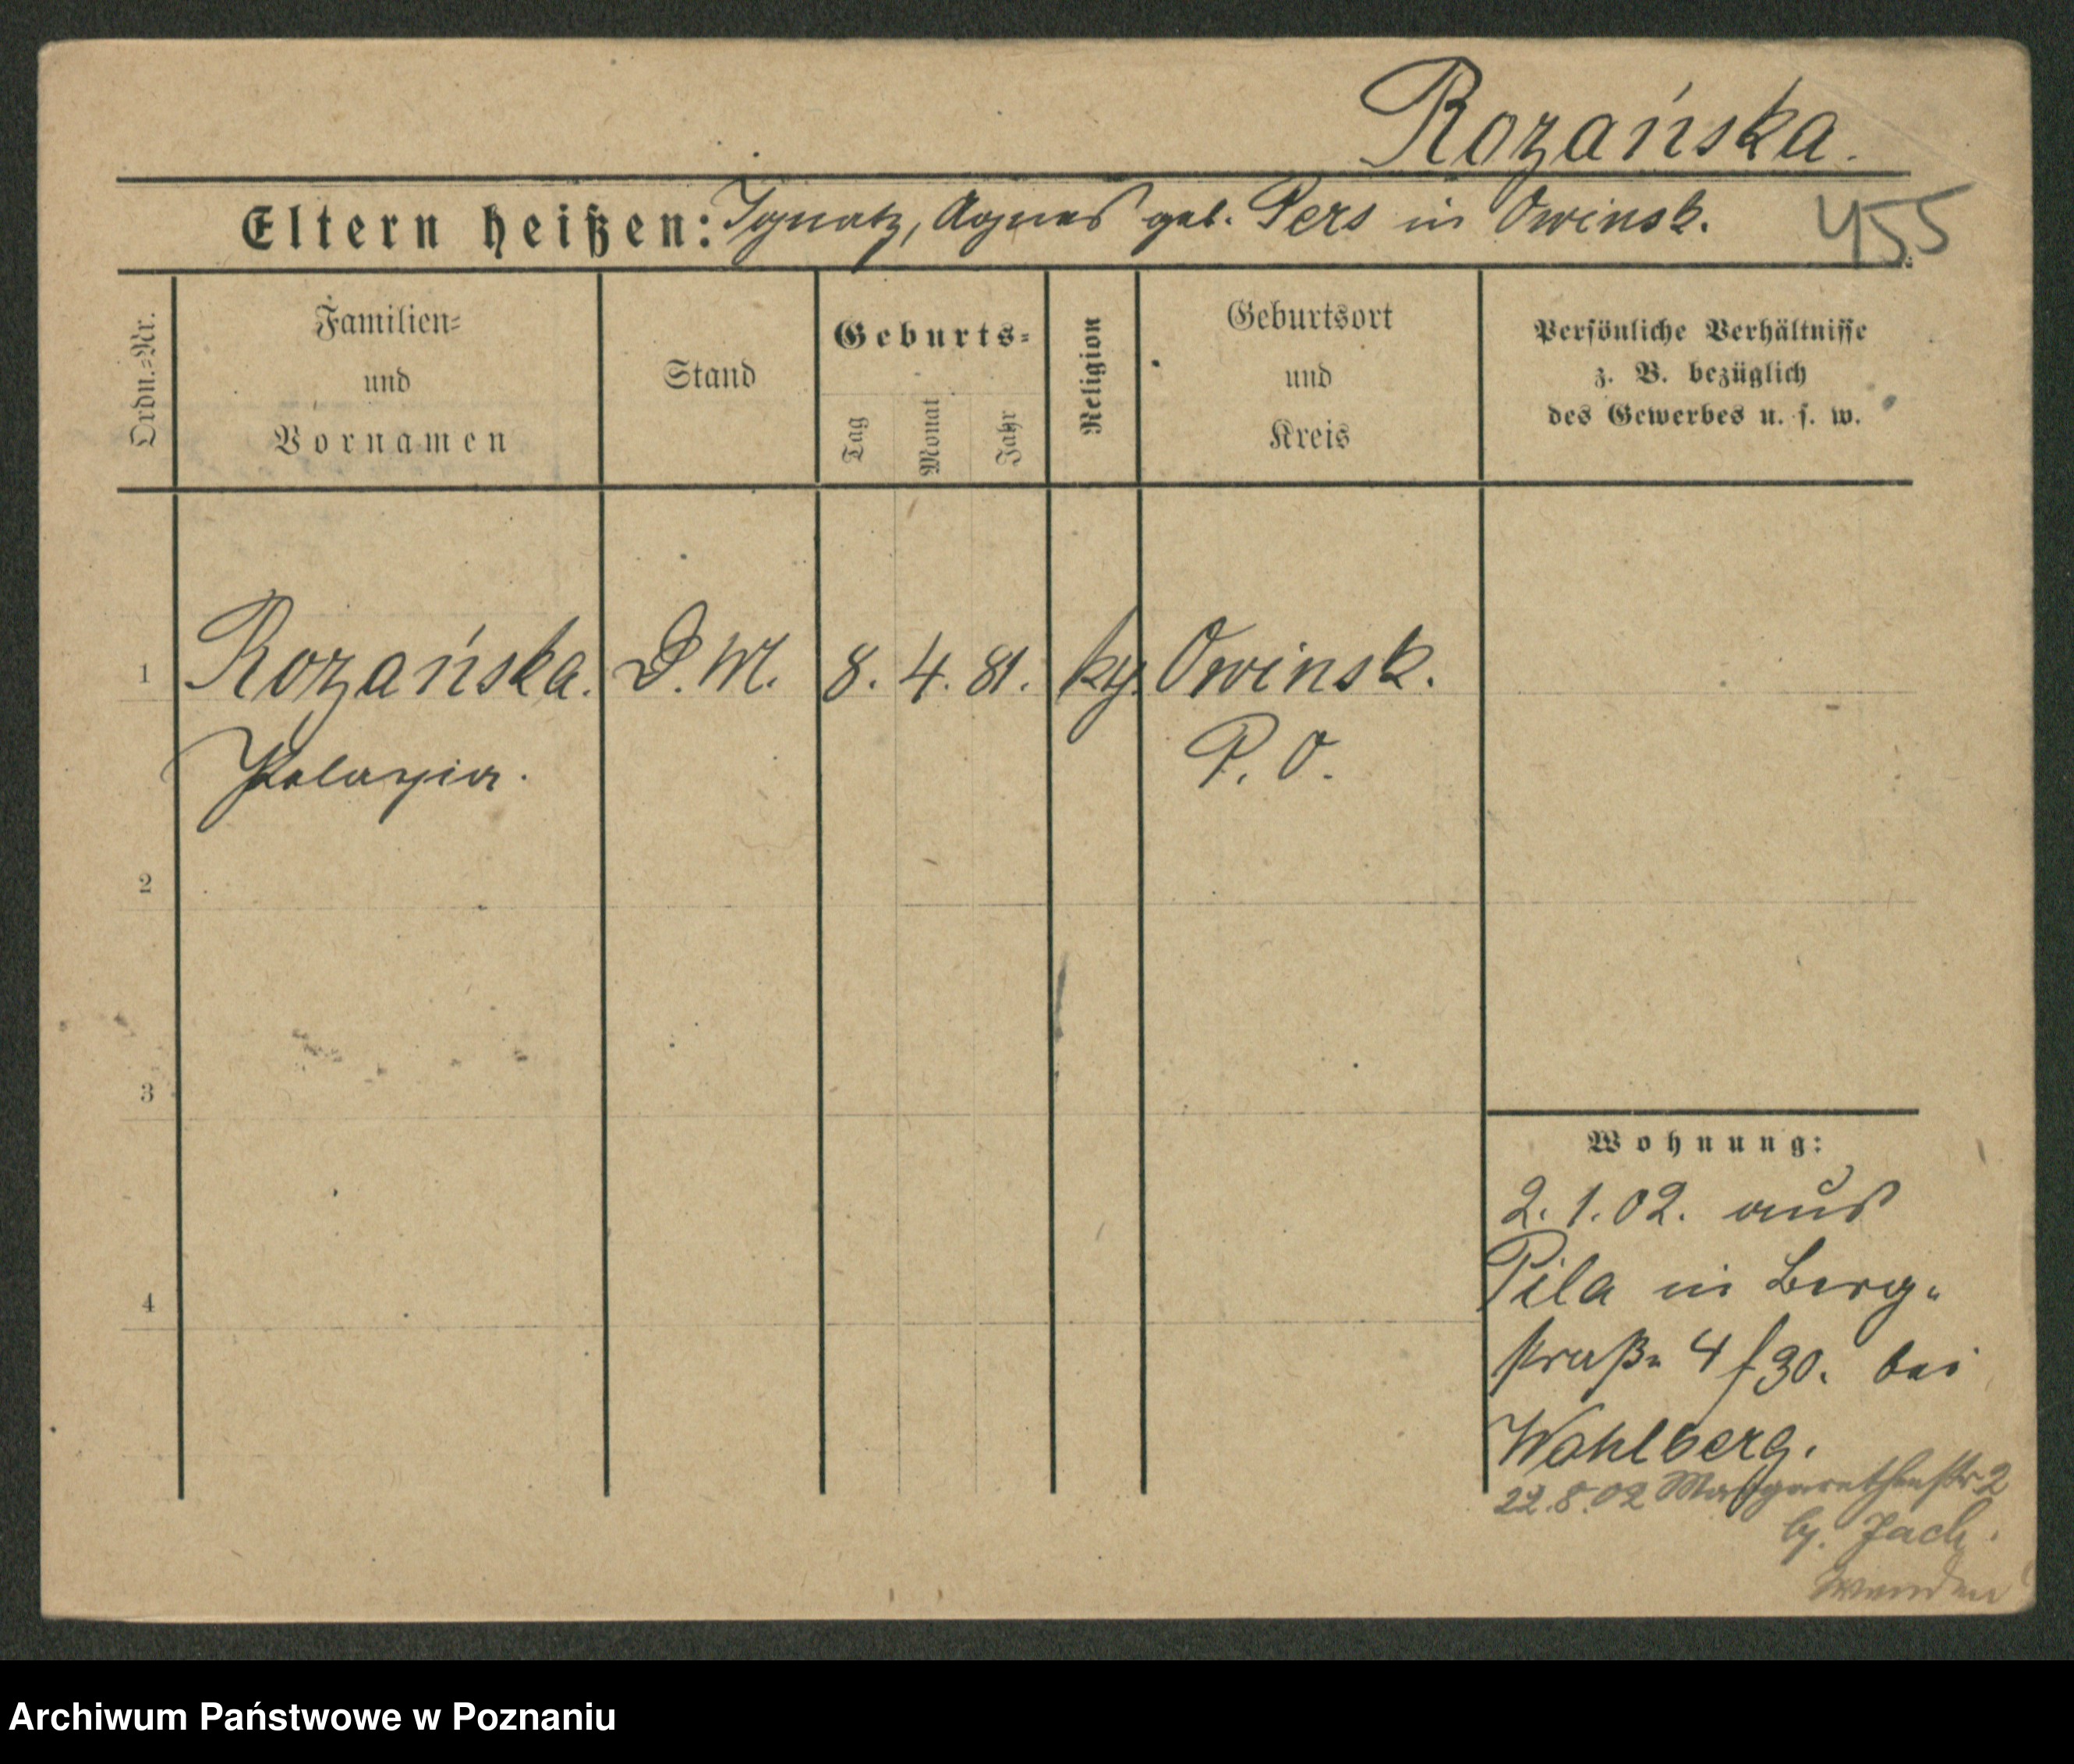 Rozańska.
Eltern heißen: Ignatz, Agnes geb. Pers in Owinsk.
455
Ordn.=Nr.
Familien=
und
Vornamen
Stand
Geburts=
Tag
Monat
Jahr
Religion
Geburtsort
und
Kreis
Persönliche Verhältnisse
z. B. bezüglich
des Gewerbes u. s. w.
1 Rozańska. D. M. 8. 4. 81. Owinsk.
Pelagia. P. O.
2
3
4
Wohnung:
2. 1. 02. aus
Pila in Berg-
straße 4 f 30. bei
Wohlberg.
22. 8. 02 Margarethenstr 2
b/. Jach.
wenden
Archiwum Państwowe w Poznaniu